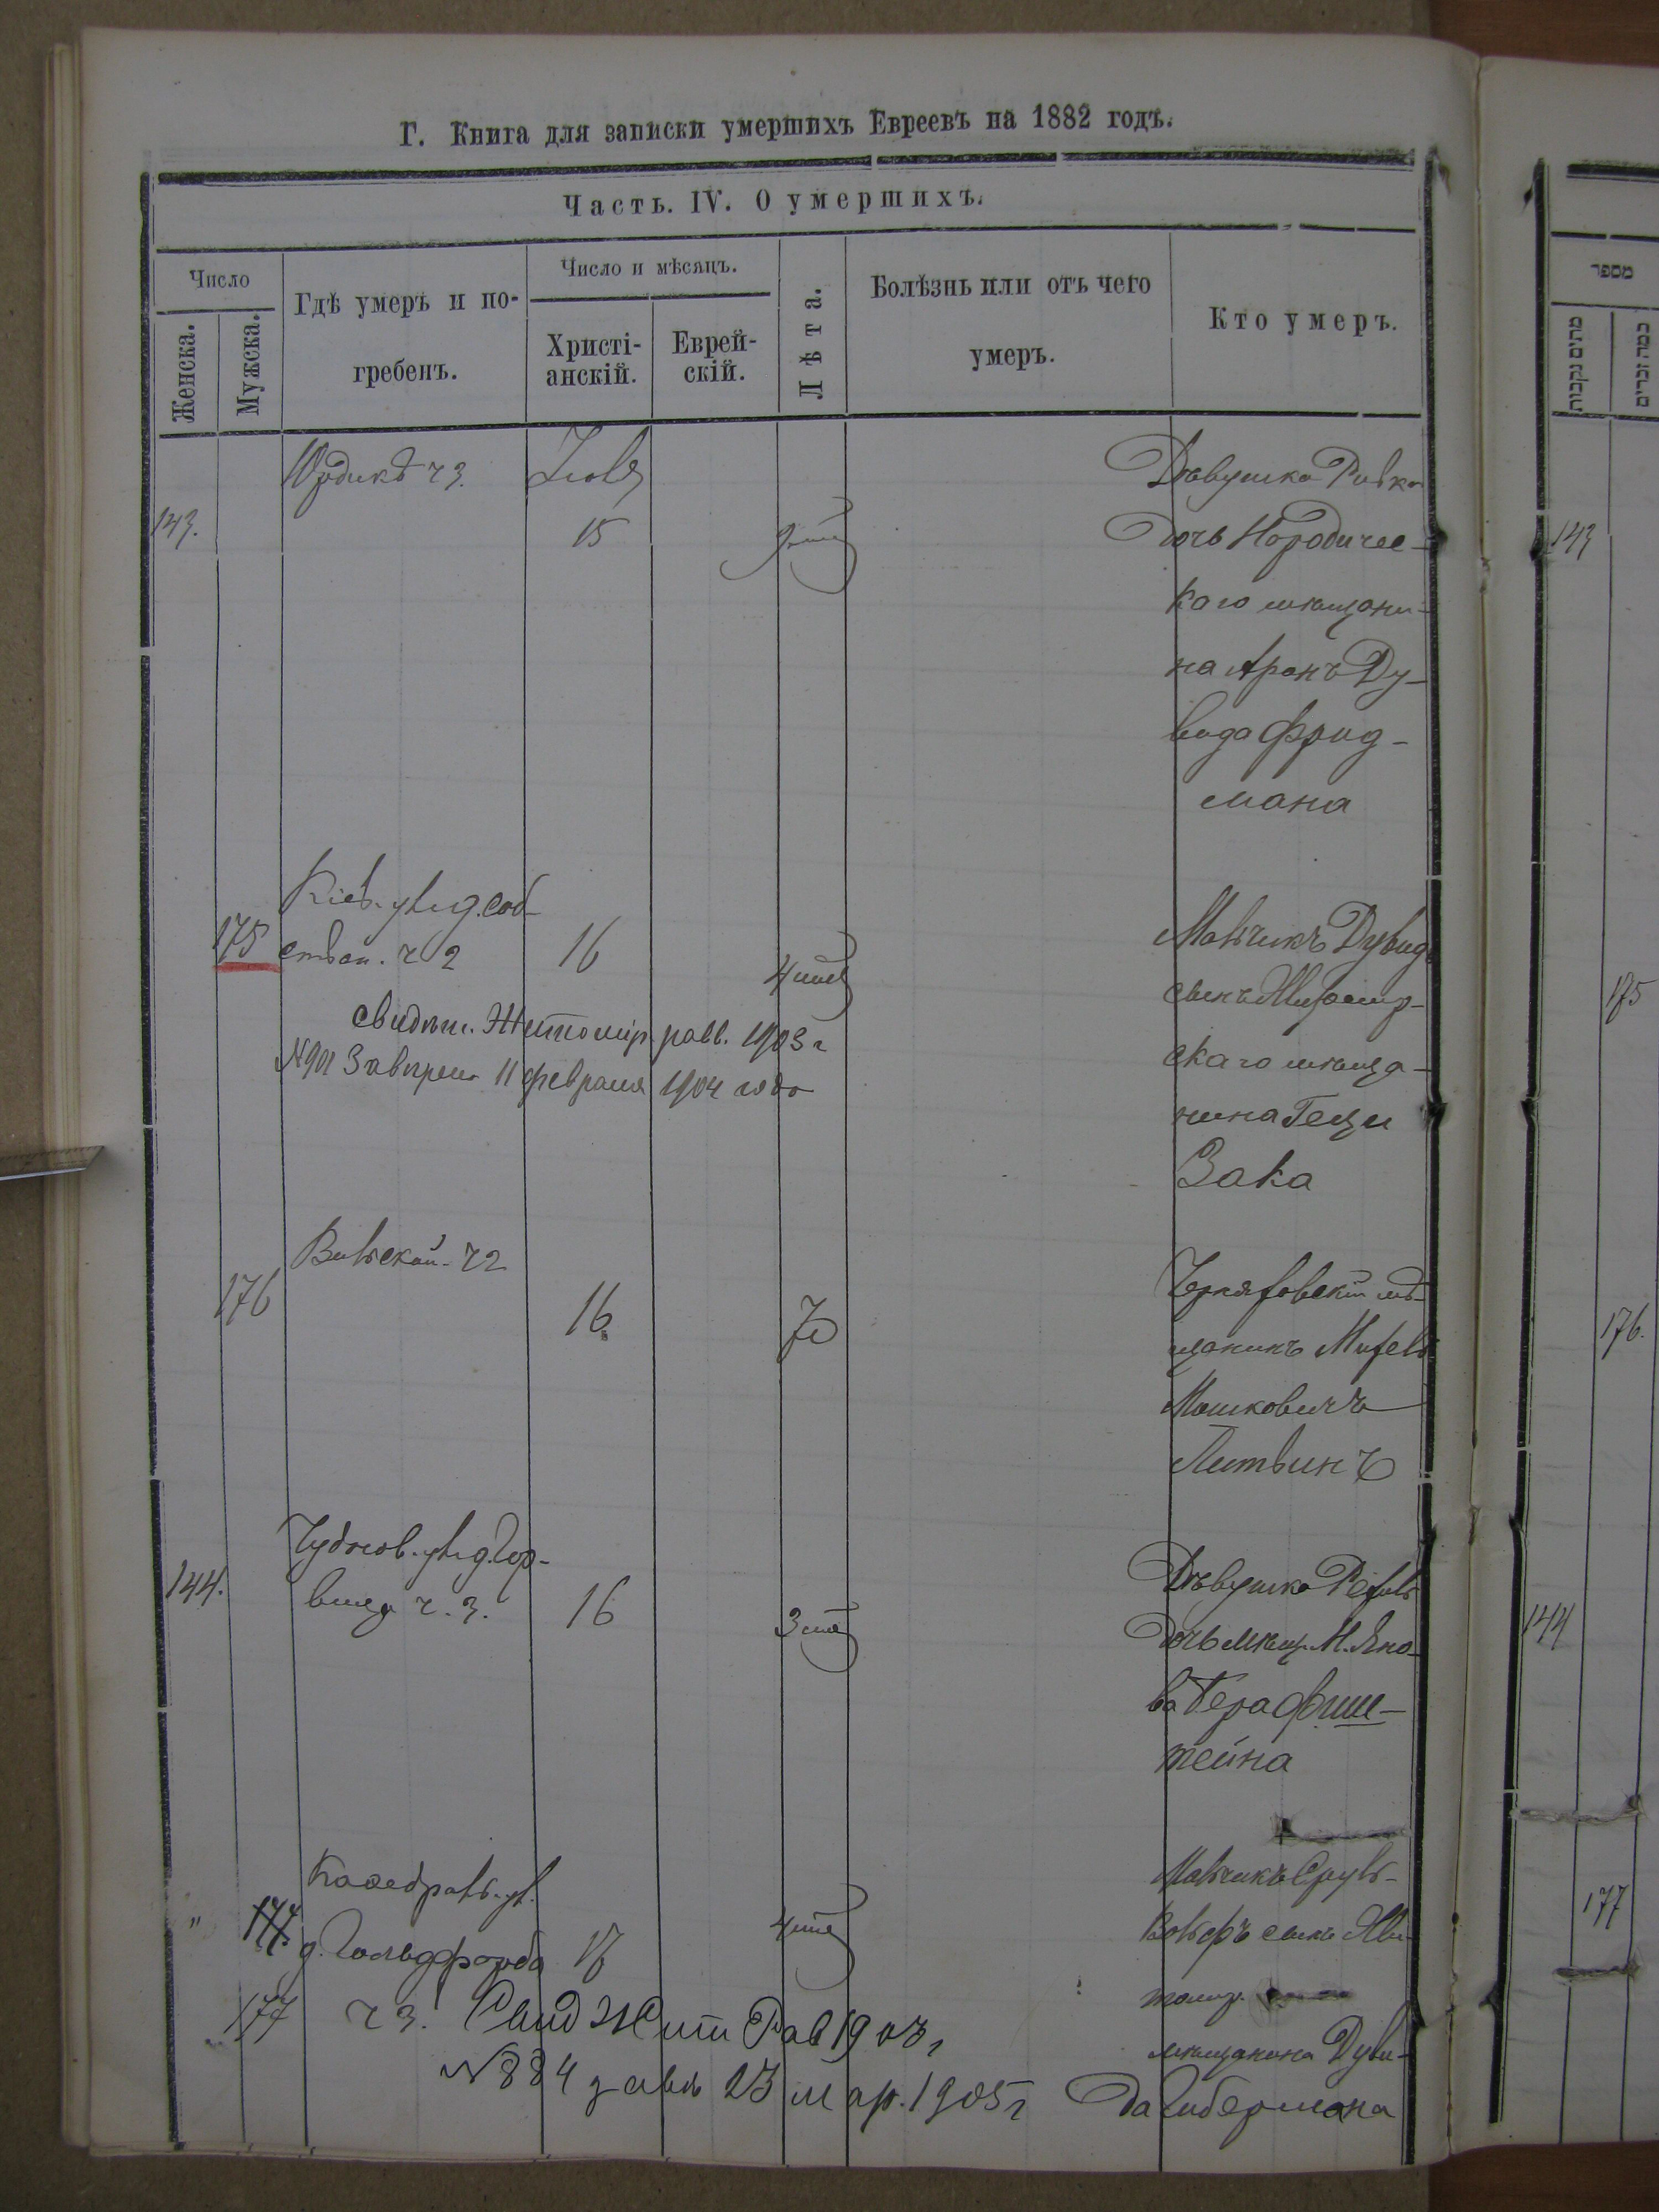 Г. Книга для записки умершихъ Евреевъ на 1882 годъ.
Часть. IV. О умершихъ.
Число
Женска.
Мужска.
Гдѣ умеръ и по-
гребенъ.
Число и мѣсяцъ.
Христі-
анскій.
Еврей-
скій.
Лѣта.
Болѣзнь или отъ чего
умеръ.
Кто умеръ.
ч 3.
143.
15
Дѣвушка Ривка
Дочь Нородичес-
каго мѣщани-
на Аронъ Ду-
вида Фрид-
мана
175
Кіев. ул. д. соб-
ствен. ч 2
16
4
Мальчикъ Дувидъ
сынъ Житомир-
скаго мѣща-
нина Геци
Зака
свидѣт. Житомір равв. 1903 г
N 901 Завѣрено 11 февраля 1904 года
176
Вильской. ч 2
16.
70
мѣ-
щанинъ
Мошковичъ
Литвинъ
144.
Чуднов. ул. д. Гор-
ч. 3.
16
3
Дѣвушка
дочь мѣщ. М. Яно-
ва Бера Фиш-
тейна
"
177.
177
Кафедраль. ул.
д. Гольдфарба
ч 3.
17
4
Мальчикъ Сруль-
Вольфъ сынъ Жи-
томир.
мѣщанина Дуви-
да Либермана
Свид Жит Рав 1903 г
N 884 завѣ 23 мар. 1905 г
מספר
מתים נקבות
כמה זכרים
143
175
176.
144
177